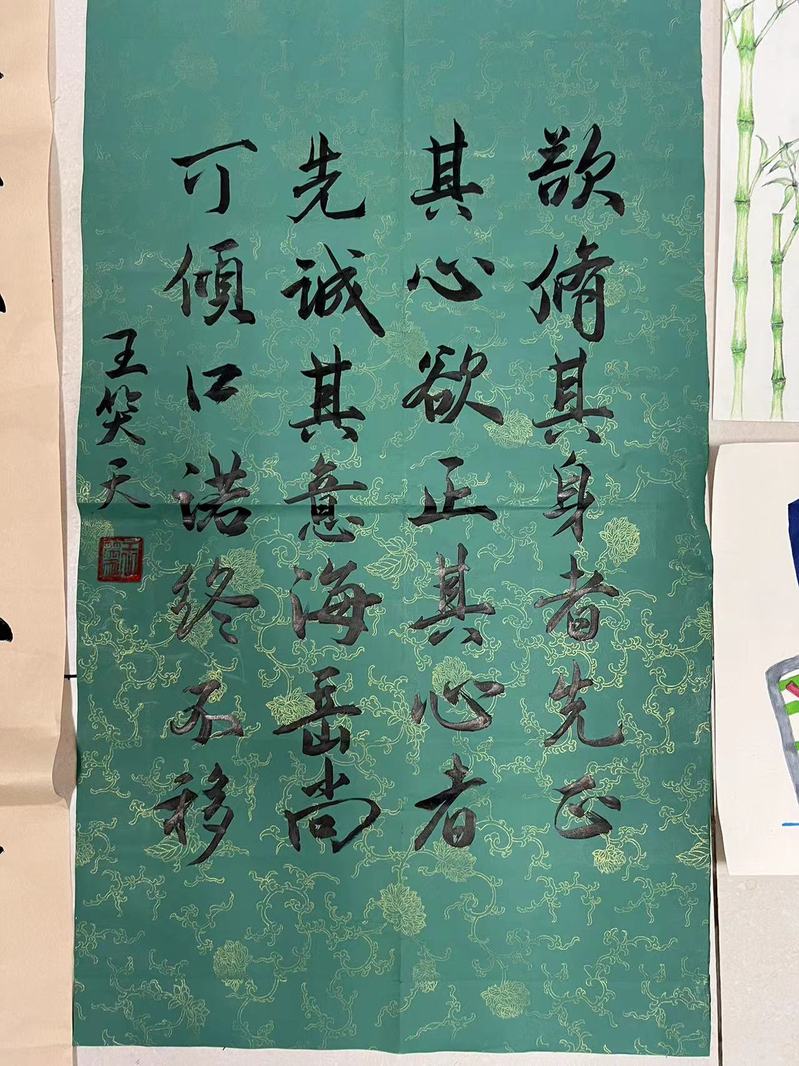 欲脩其身者先正
其心欲正其心者
先诚其意海岳尚
可倾口诺终不移
王笑天